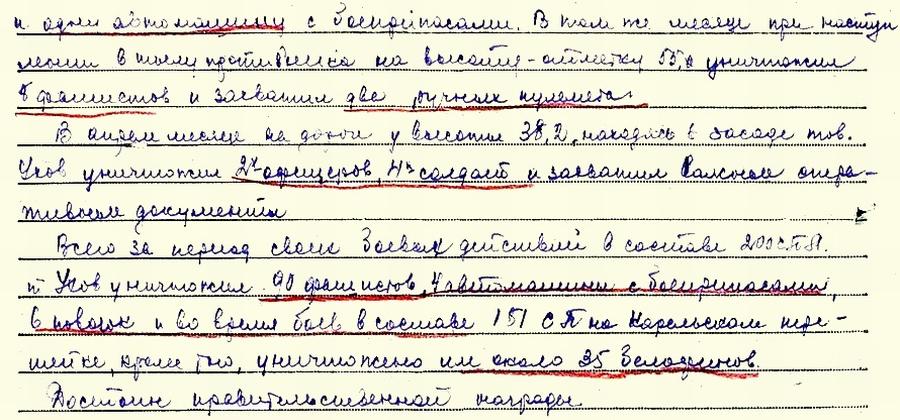 и одну автомашину с боеприпасами. В том же месяце при наступ
лении в тылу противника на высоту-отметку 55,  уничтожил
8 фашистов и захватил два ручных пулемета.
В апреле месяце на дороге у высоты 38,2, находясь в засаде тов.
Уков уничтожил 2х офицеров, 4х солдат и захватил опера-
тивные документы
Всего за период своих боевых действий в составе 200 СП
т. Уков уничтожил 90 фашистов, 4 автомашины с боеприпасами,
6 повозок и во время боев в составе 151 СП на Карельском пере-
шейке, кроме того, уничтожено им около 35 белофинов.
Достоин правительственной награды